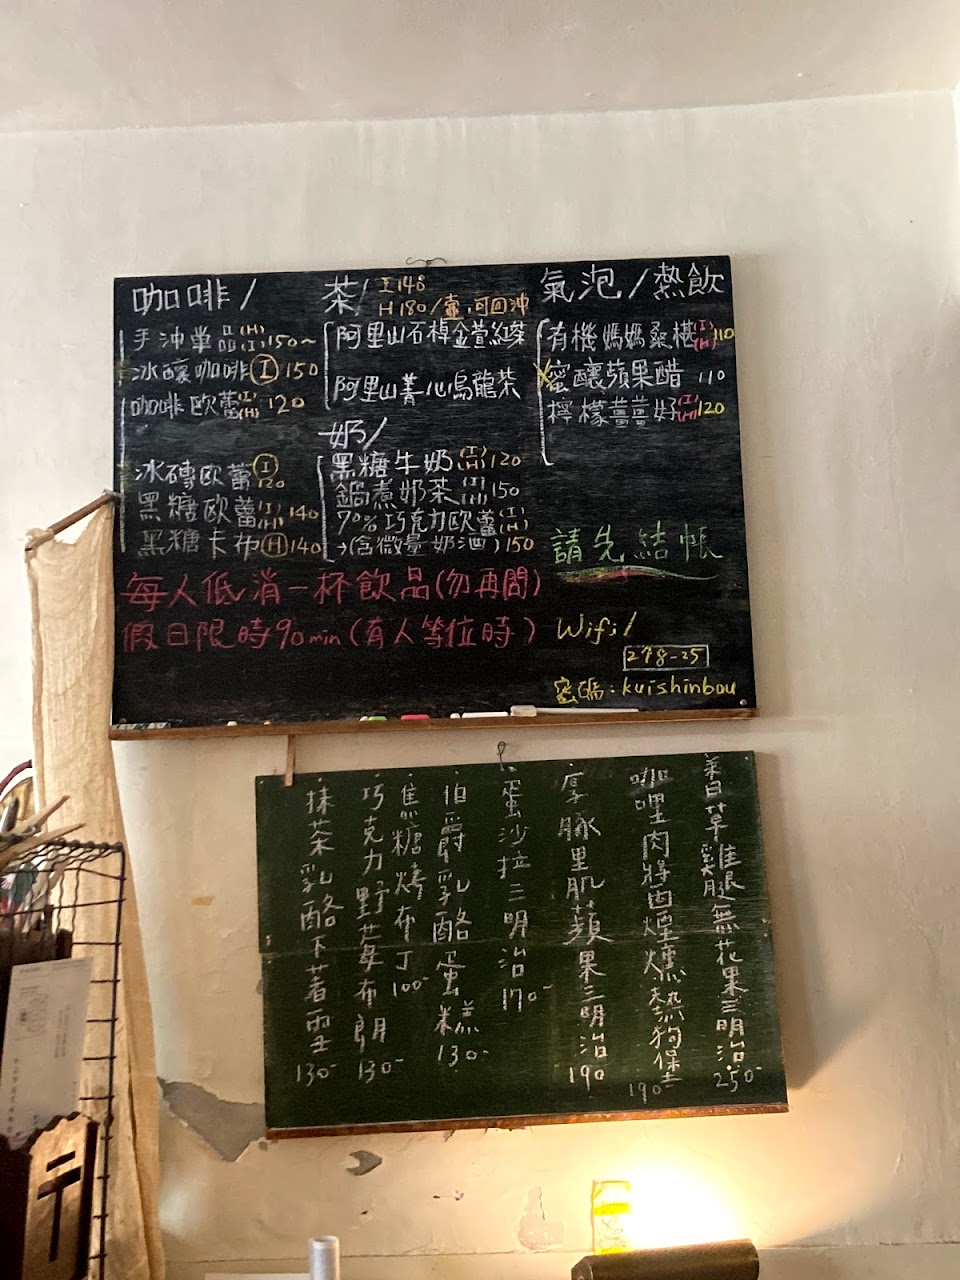 咖啡/
手沖單品(H)(I)150~
冰釀咖啡(I)150
咖啡歐蕾(I)(H)120
冰磚歐蕾(I)120
黑糖歐蕾(I)(H)140
黑糖卡布(H)140
茶/ I 148
H 180/壺,可回沖
阿里山石棹金萱紅茶
阿里山菁心烏龍茶
奶/
黑糖牛奶(I)(H)120
鍋煮奶茶(I)(H)150
70%巧克力歐蕾(I)(H)
→(含微量奶酒)150
氣泡/熱飲
有機媽媽桑椹(I)(H)110
蜜釀蘋果醋 110
檸檬薑薑好(I)(H)120
請先結帳
每人低消一杯飲品(勿再問)
假日限時90min(有人等位時)
Wifi/
278-25
密碼:kuishinbou
香草雞腿無花果三明治250-
咖哩肉將西煙燻熱狗堡190-
厚豚里肌蘋果三明治190
蛋沙拉三明治170-
伯爵乳酪蛋糕130-
焦糖烤布丁100-
巧克力野莓布朗130-
抹茶乳酪下著雪130-